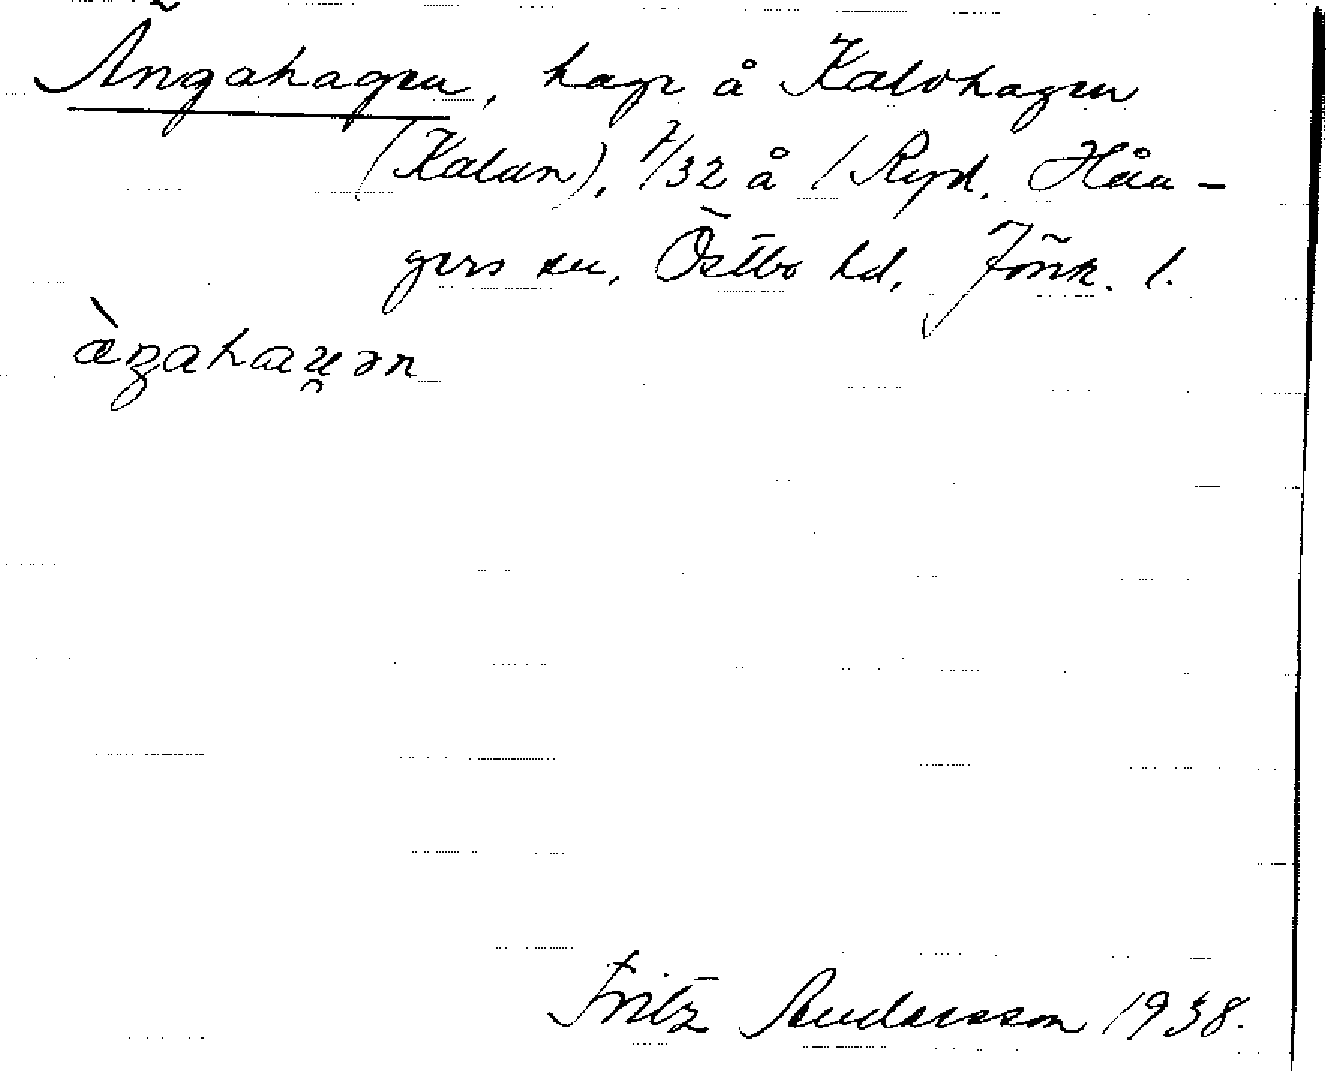 Ängahagen, hage å Kalvhagen
(Kalan), 7/32 å 1 Ryd, Hån-
gers sn, Östbo hd, Jönk. l.
ὰŋahaṷən
Fritz Andersson 1938.